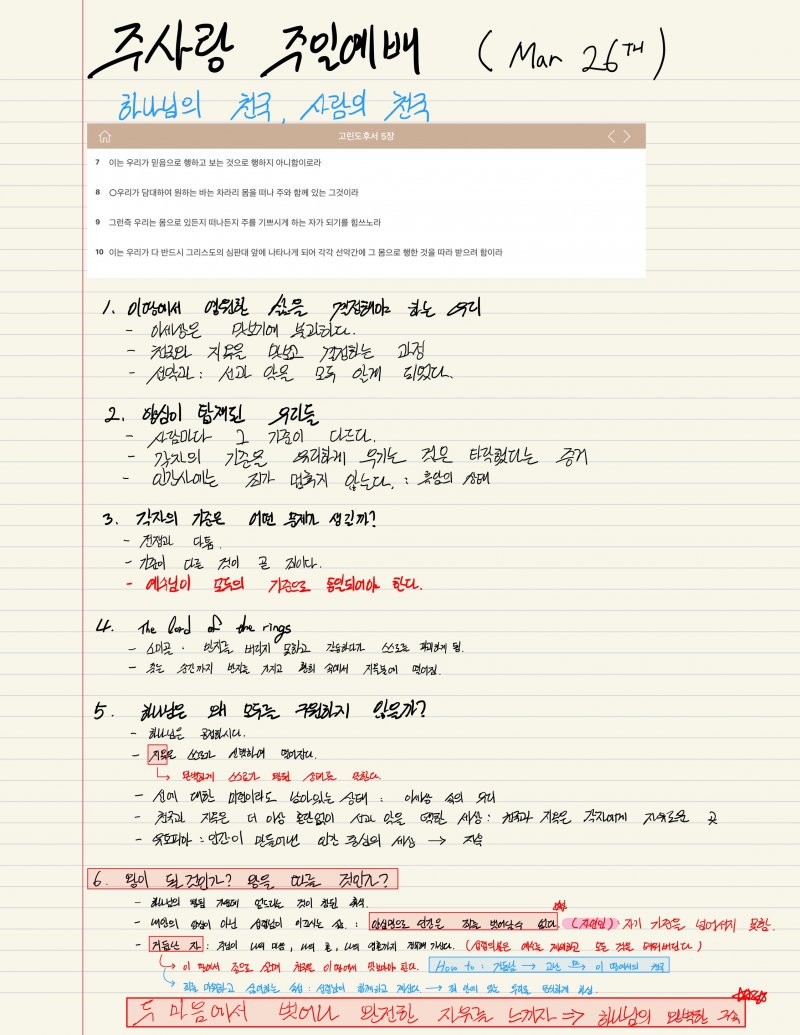 주사랑 주일예배 (Mar 26TH)
하나님의 천국, 사람의 천국
고린도후서 5장
7 이는 우리가 믿음으로 행하고 보는 것으로 행하지 아니함이로라
8 ○우리가 담대하여 원하는 바는 차라리 몸을 떠나 주와 함께 있는 그것이라
9 그런즉 우리는 몸으로 있든지 떠나든지 주를 기쁘시게 하는 자가 되기를 힘쓰노라
10 이는 우리가 다 반드시 그리스도의 심판대 앞에 나타나게 되어 각각 선악간에 그 몸으로 행한 것을 따라 받으려 함이라
1. 이땅에서 영원한 삶을 결정해야 하는 우리
- 이세상은 맛보기에 불과하다.
- 천국와 지옥을 맛보고 결정하는 과정
- 선악과 : 선과 악을 모두 알게 되었다.
2. 양심이 탑재된 우리들
- 사람마다 그 기준이 다르다.
- 각자의 기준을 유리하게 우기는 것은 타락했다는 증거
- 인간사에는 죄가 멈추지 않는다. : 흑암의 상태
3. 각자의 기준은 어떤 문제가 생긴까?
- 전쟁과 다툼.
- 기준이 다른 것이 곧 죄이다.
- 예수님이 모두의 기준으로 통일되어야 한다.
4. The lord of the rings
- 스미골 : 반지를 버리지 못하고 갈등하다가 스스로를 파괴하게 됨.
- 죽는 순간까지 반지를 가지고 환희 속에서 지옥불에 떨어짐.
5. 하나님은 왜 모두를 구원하지 않을까?
- 하나님은 공정하시다.
- 지옥은 스스로가 선택하여 떨어진다.
↳ 완벽하게 스스로가 왕된 상태를 뜻한다.
- 선에 대한 미련이라도 남아있는 상태 : 이세상 속의 우리
- 천국과 지옥은 더 이상 혼란없이 선과 악을 택한 세상 : 천국과 지옥은 각자에게 자유로운 곳
- 유토피아 : 인간이 만들어낸 인간 중심의 세상 → 지옥
6. 왕이 될 것인가? 왕을 따를 것인가?
- 하나님의 왕된 가운데 엎드리는 것이 참된 축복.
- 내안의 양심이 아닌 성령님이 이끄시는 삶. : 양심만으로 인간은 죄를 벗어날 수 없다. (자연인) : 자기 기준을 넘어서지 못함.
- 거듭난 자 : 주님이 나의 마음, 나의 몸, 나의 영혼까지 점령해 가신다. (성령의 불은 예수는 제외하고 모든 것을 태워버린다)
↳ 이 땅에서 종으로 살며 천국을 이땅에서 맛보아야 한다. How to : 거듭남 → 고난 → 이 땅에서의 천국
↳ 죄를 미워하고 싫어하는 속성 : 성령님이 함께하고 계신다. → 죄 안에 있는 우리를 답답하게 하심.
두 마음에서 벗어나 완전한 자유를 느끼자 ⇒ 하나님의 완벽한 지옥